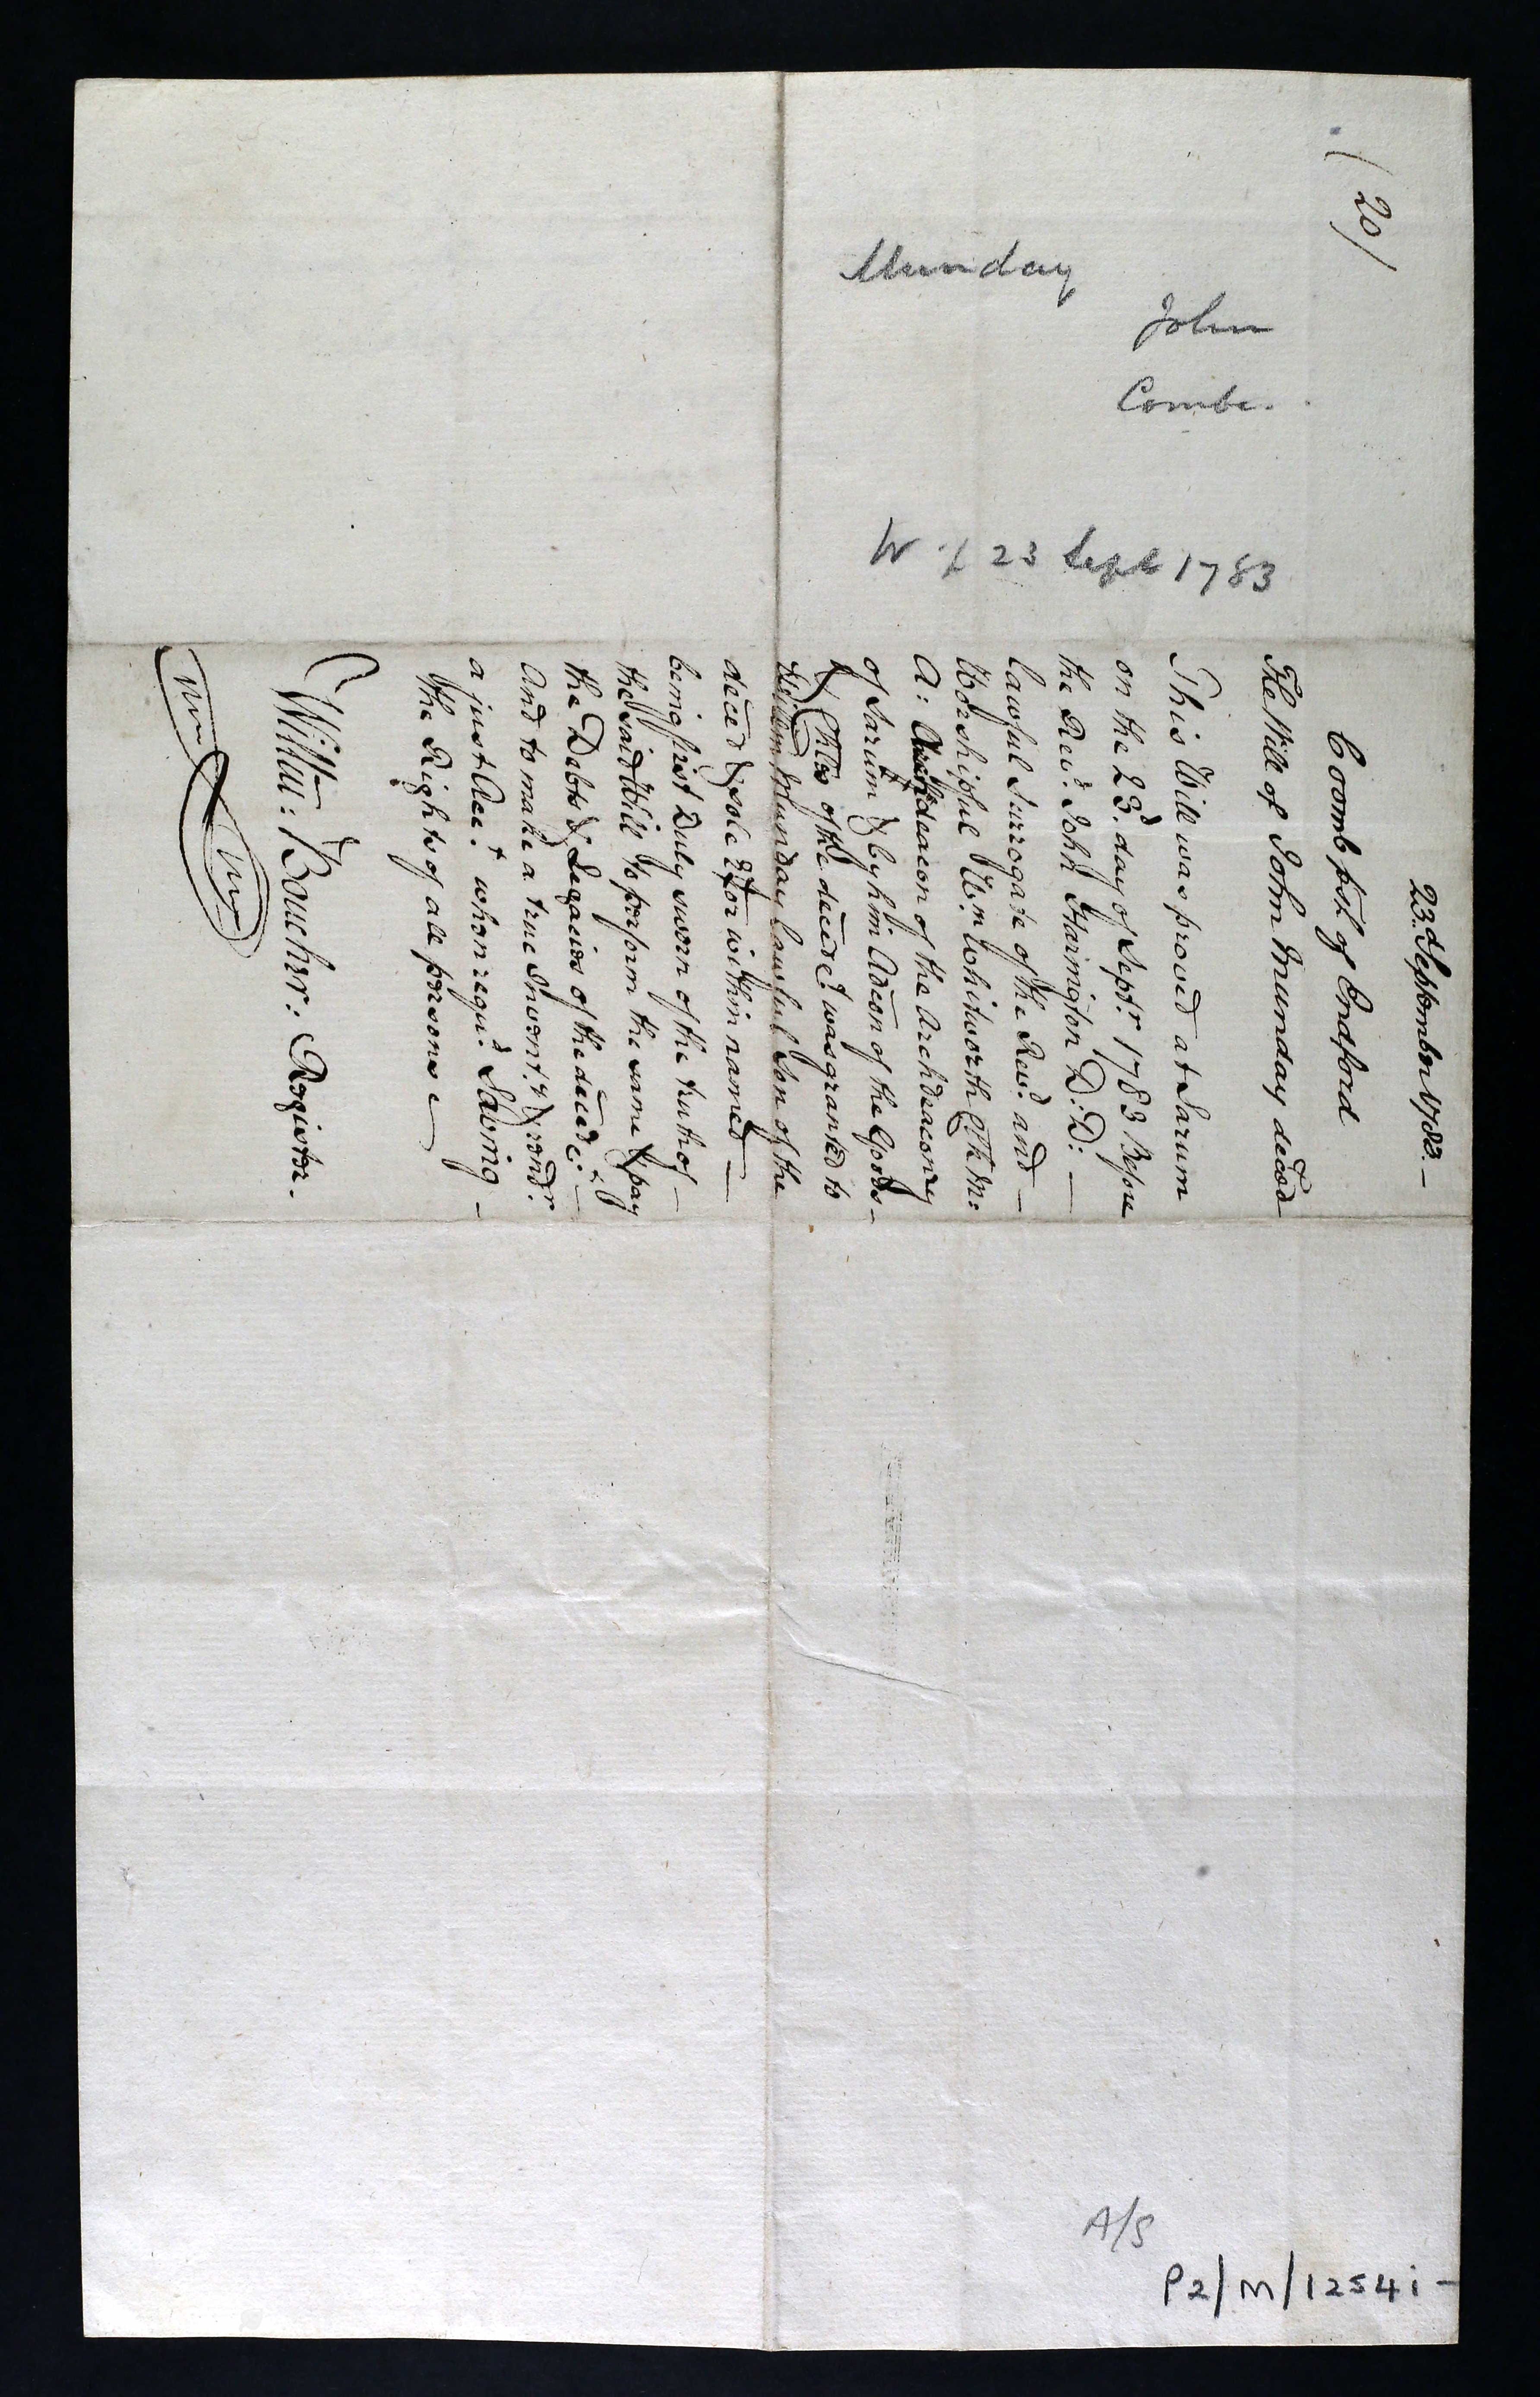 (20)
Munday
John
Combe.
W 23 Sept 1783
23.d September 1783. —
Coomb psh of Endford
The Will of John Munday deced
This Will was proved at Sarum
on the 23.d day of Sept.r 1783 Before
the Rev.d John Harington D:D: —
lawful Surrogate of the Rev.d and —
Worshipful Wm Whitworth
A: Archdeacon of the Archdeaconry
of Sarum & by him Adcon of the Goods —
& Chles of the deced was granted to
William Munday lawful Son of the
deced & sole Extor within named —
being first Duly sworn of the truth of —
the said Will to perform the same & pay
the Debts & Legacies of the deced: —
And to make a true Invent.y & rend.r
a just Acc.t when requ.d Saving —
the Rights of all persons —
Willm: Boucher: Register.
A/S
P2/M/1254i —